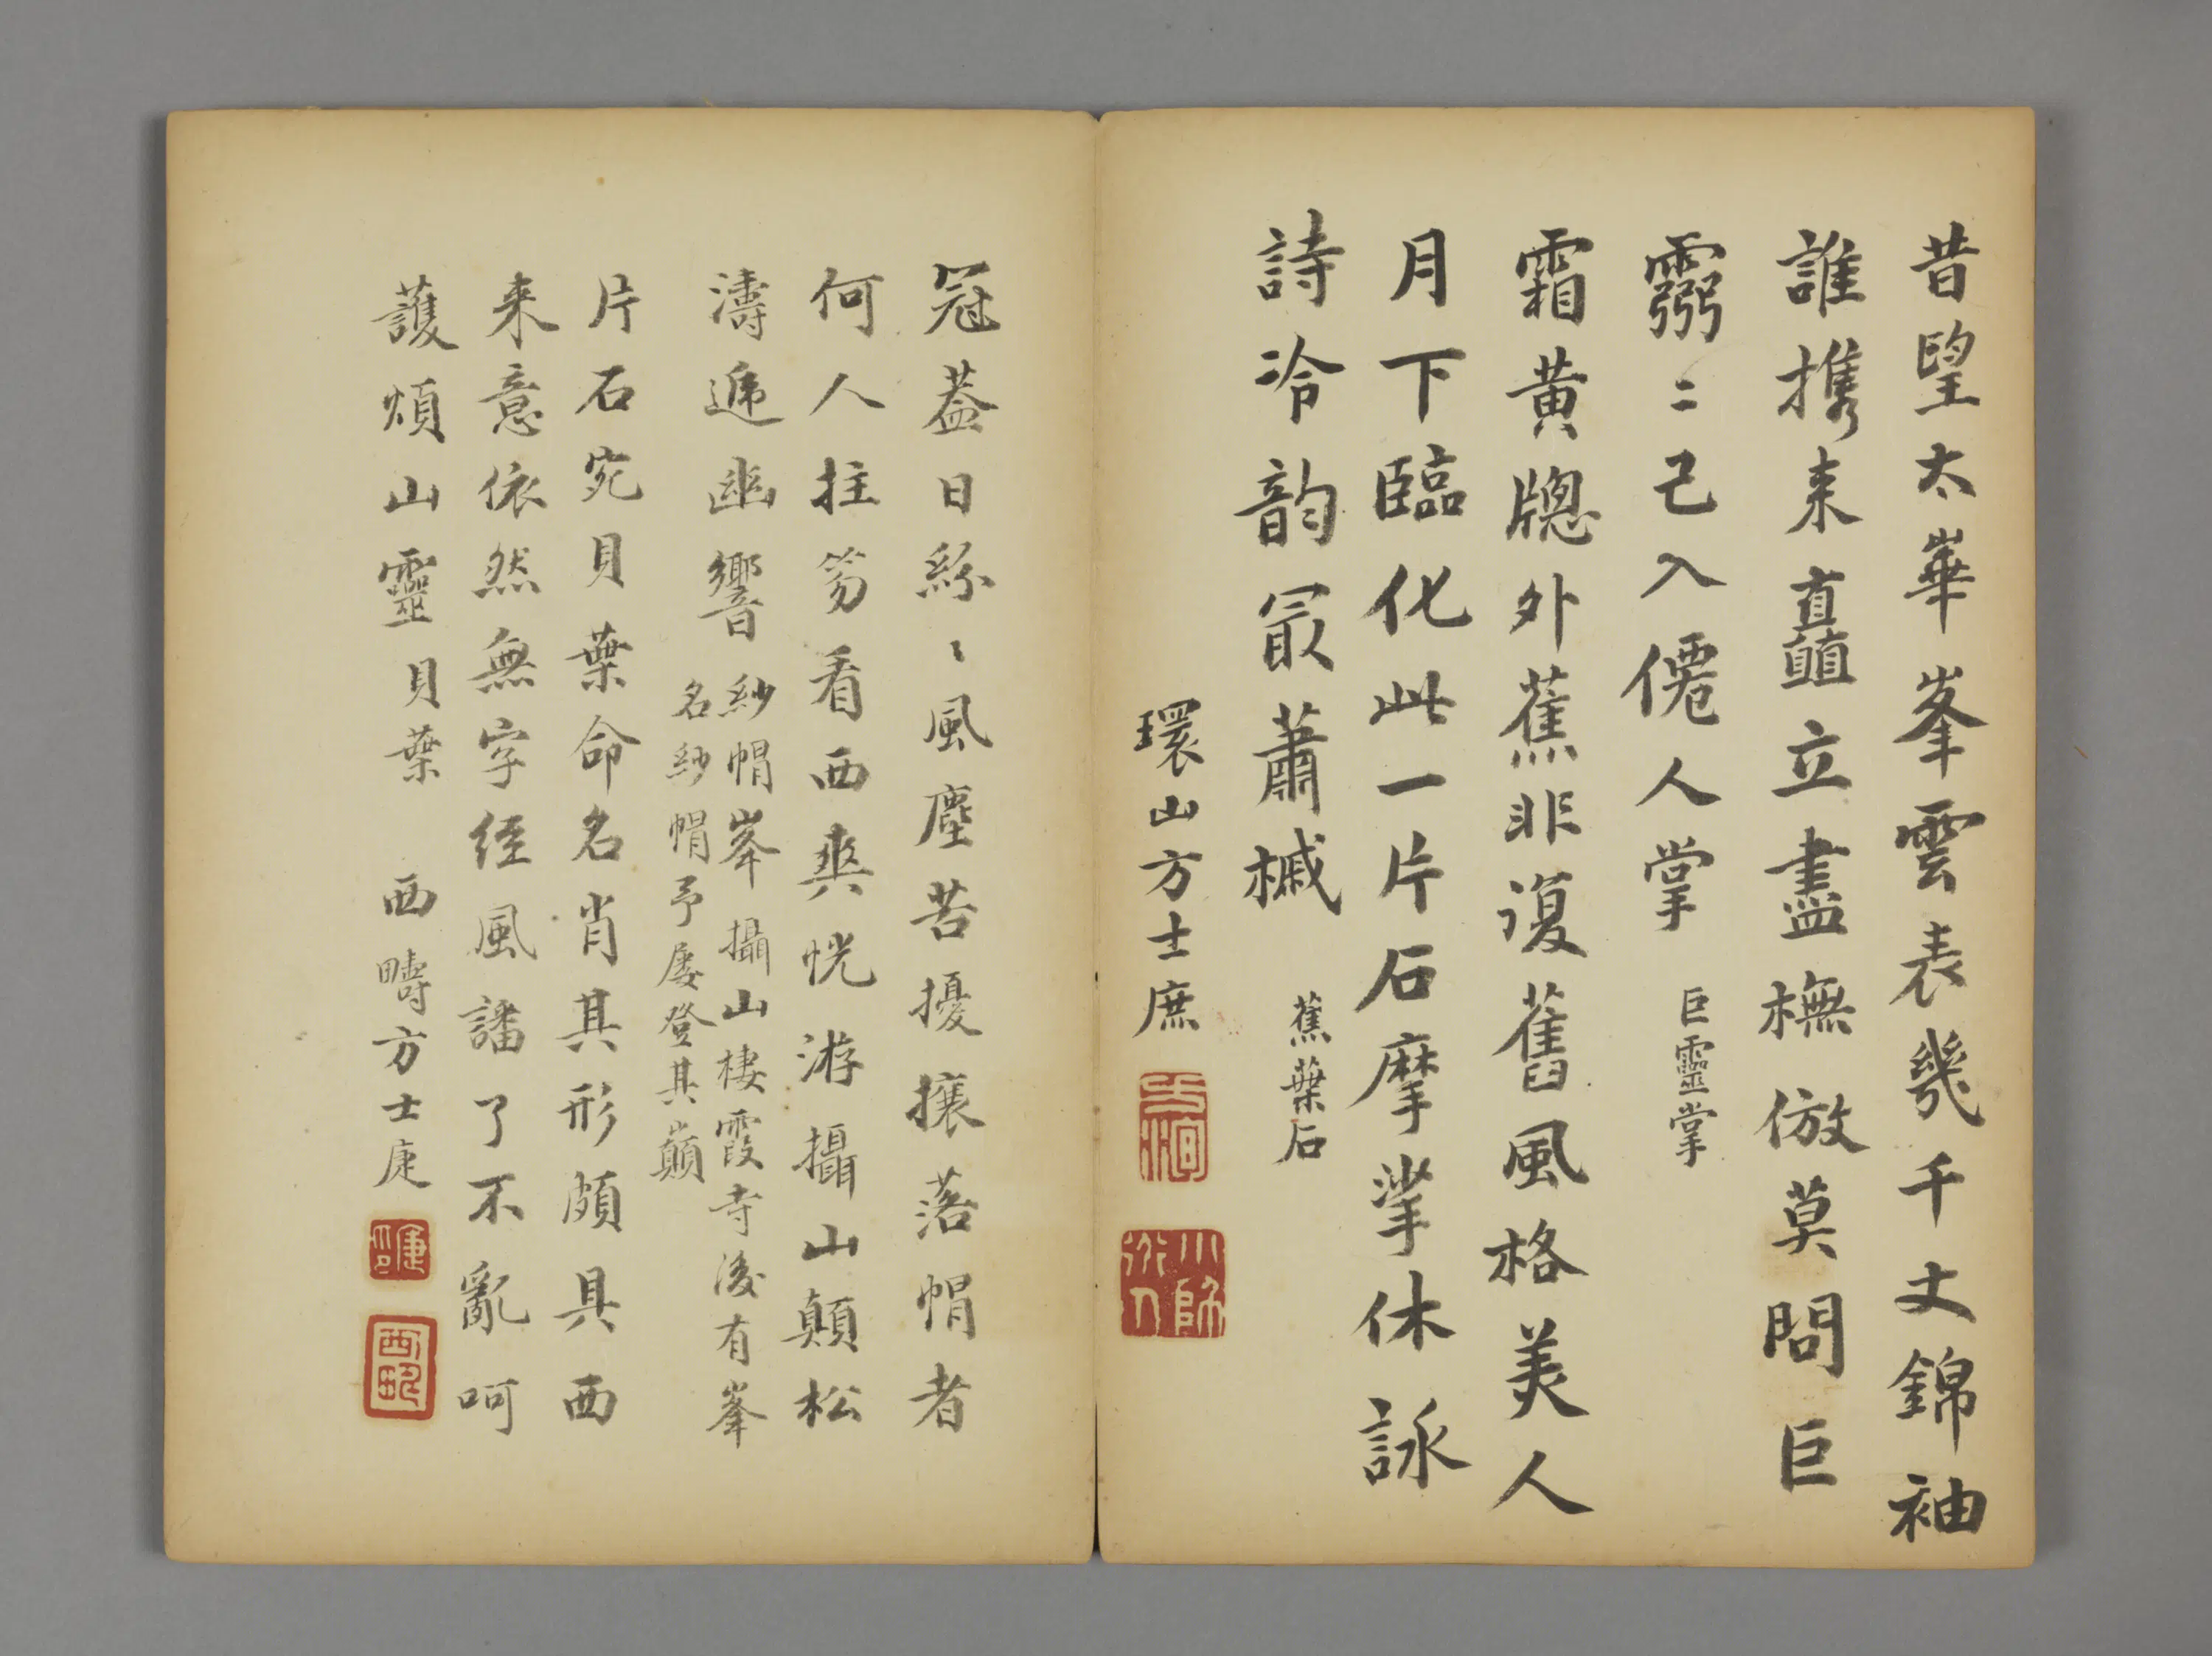 昔望太華峯雲表幾千丈錦袖
誰携来矗立盡橅倣莫問巨
靈二已入僊人掌 巨靈掌
霜黃牕外蕉非復舊風格美人
月下臨化此一片石摩挲休詠
詩冷韵㝡蕭槭 蕉葉石
環山方士庶
小師道人
冠葢日紛〻風塵苦擾攘落帽者
何人拄笏看西爽恍游攝山顛松
濤遞幽響 紗帽峯攝山棲霞寺後有峯
名紗帽予屡登其巔
片石宛貝葉命名肖其形頗具西
来意依然無字经風譒了不亂呵
護煩山靈貝葉 西疇方士
西疇